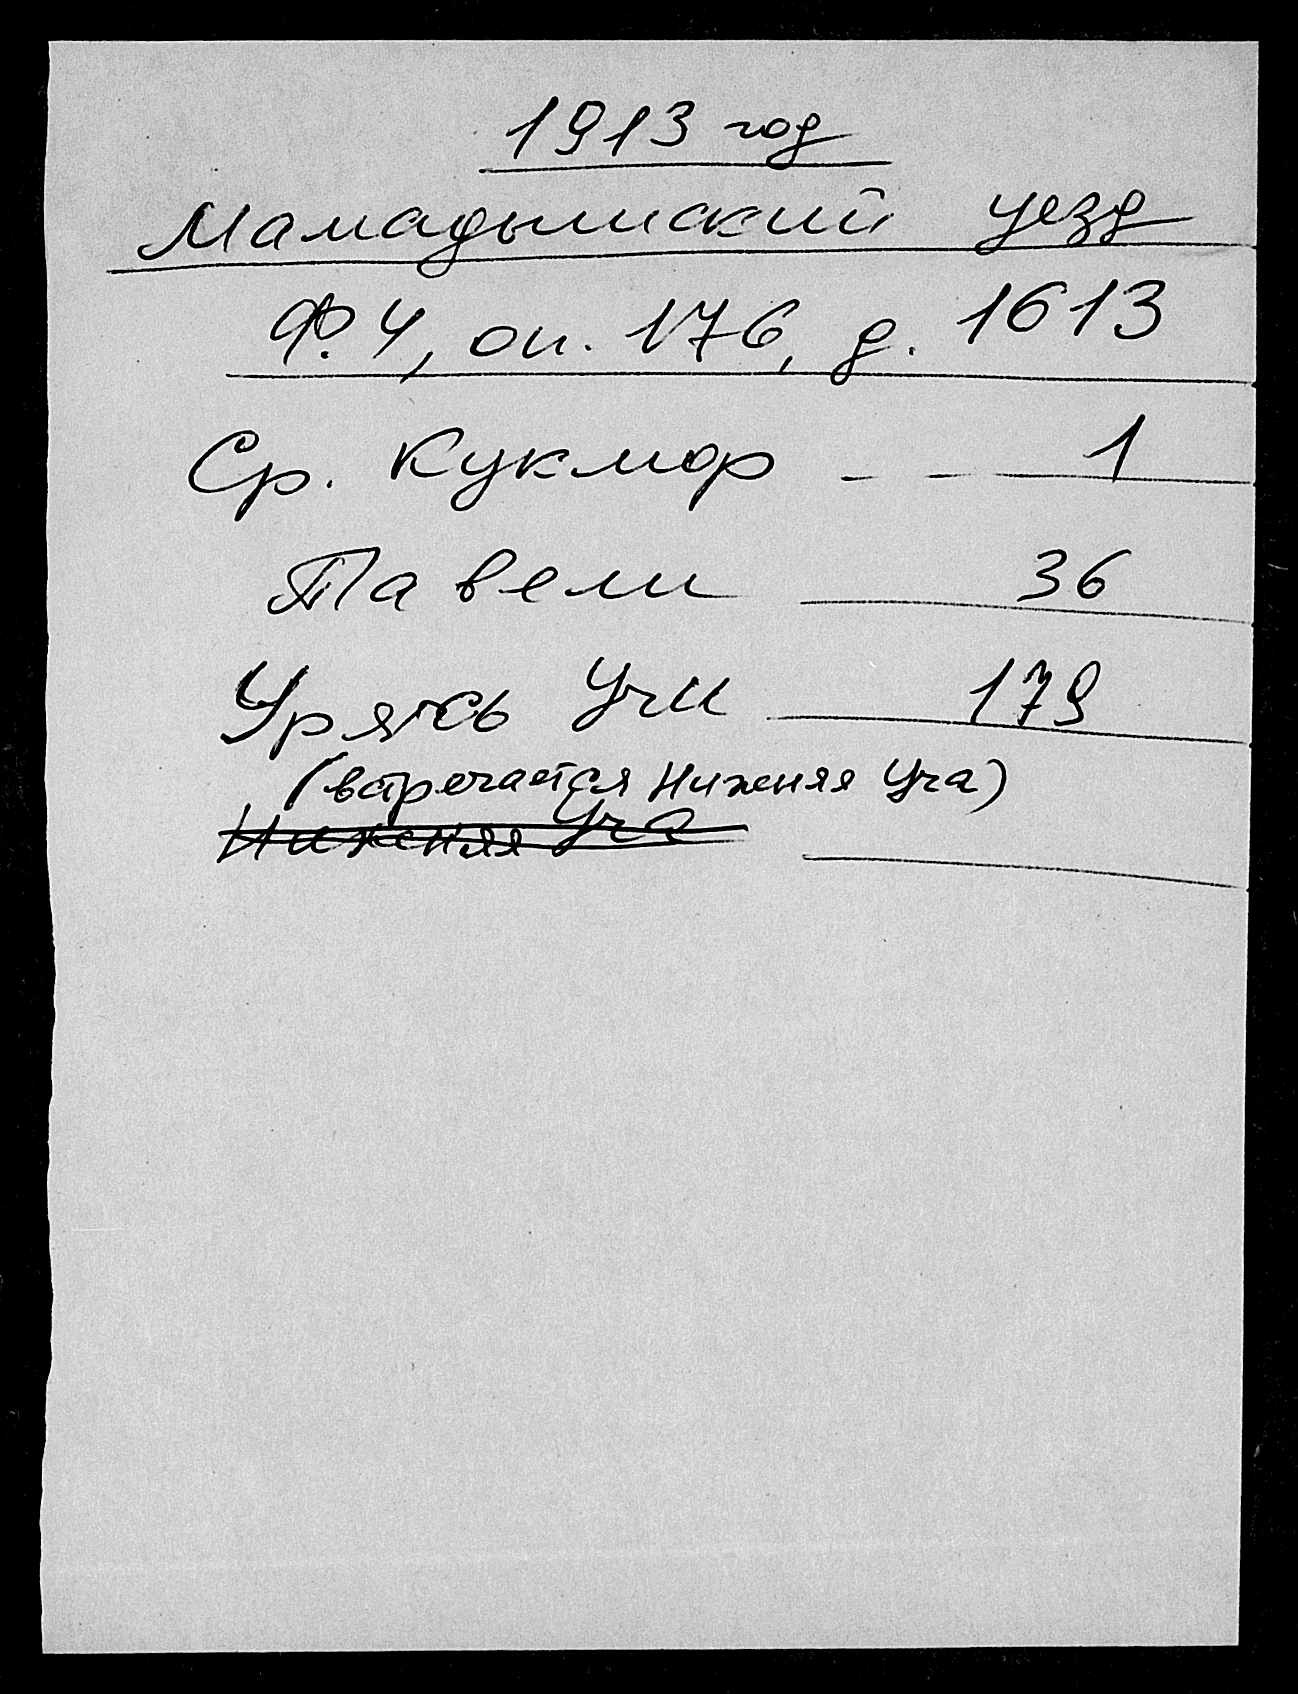 1913 год
Мамадышский уезд
Ф. 4, оп. 176, д. 1613
Ср. Кукмор - - 1
Тавели 36
Урясь Учи 179
(встречается Нижняя Уча)
Нижняя Уча